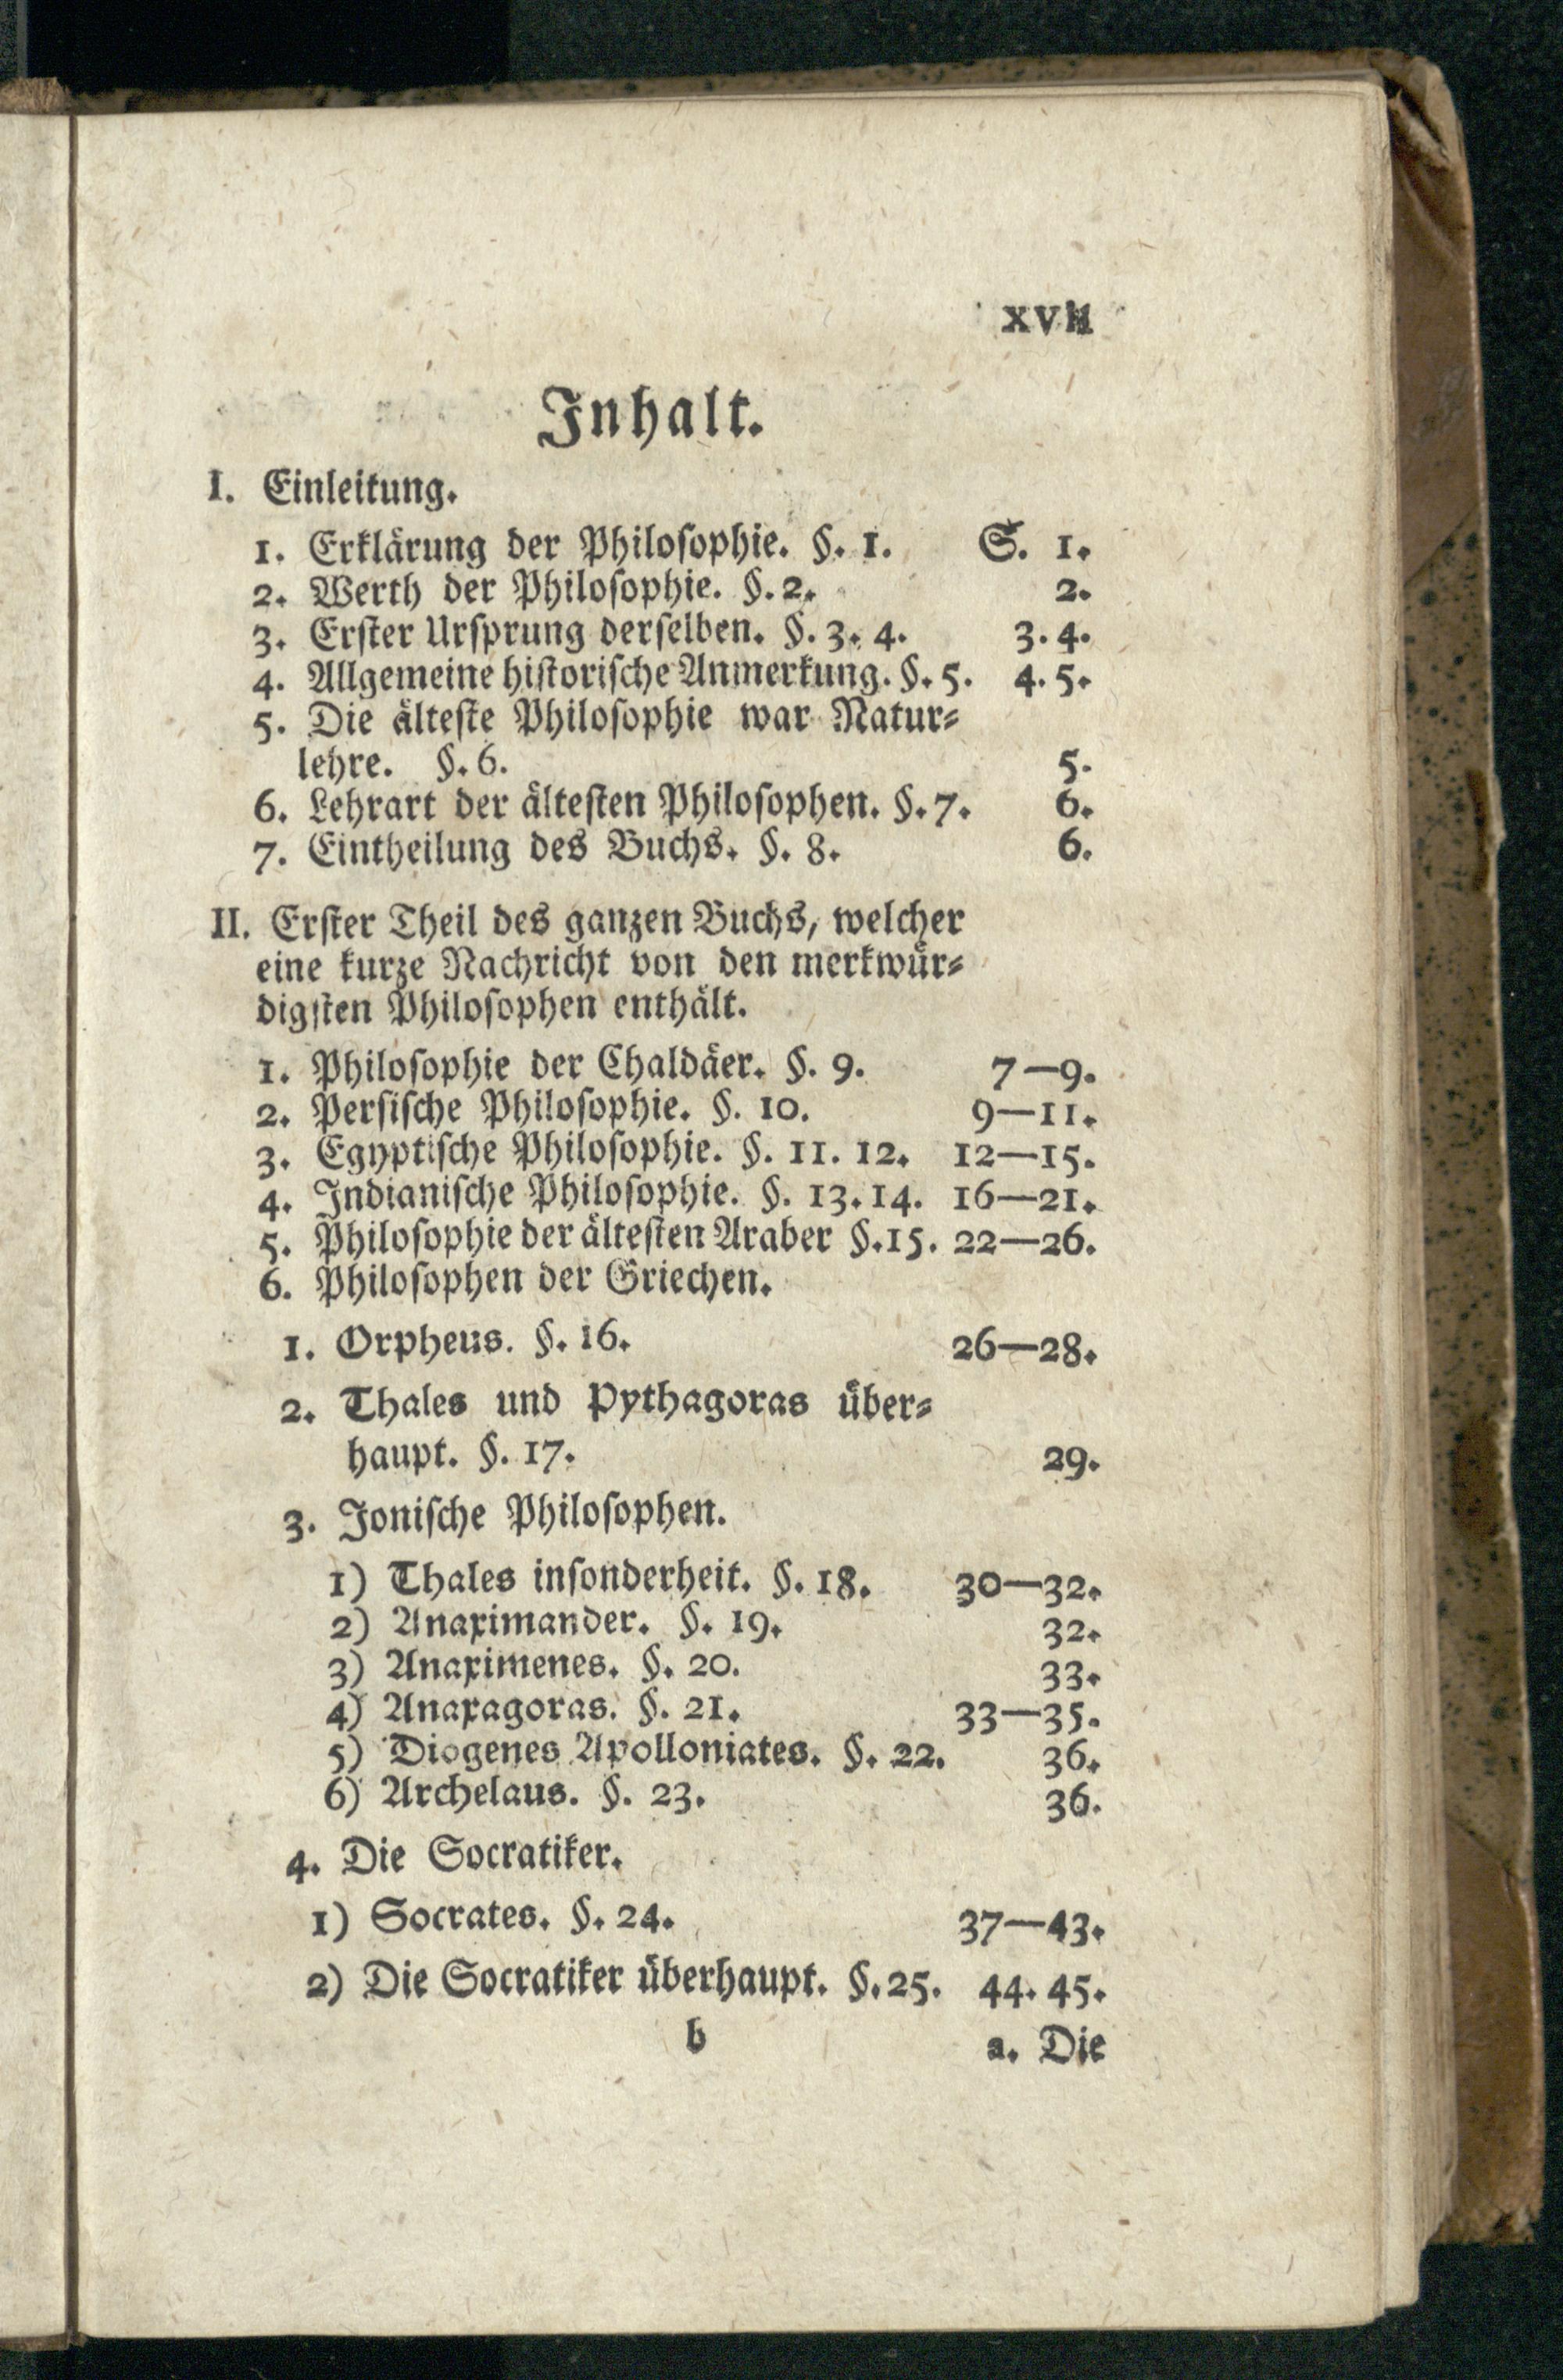 XVII
Inhalt.
I. Einleitung.
1. Erklärung der Philosophie. §. 1. S. 1.
2. Werth der Philosophie. §. 2. 2.
3. Erster Ursprung derselben. §. 3. 4. 3. 4.
4. Allgemeine historische Anmerkung. §. 5. 4. 5.
5. Die älteste Philosophie war Natur-
lehre. §. 6. 5.
6. Lehrart der ältesten Philosophen. §. 7. 6.
7. Eintheilung des Buchs. §. 8. 6.
II. Erster Theil des ganzen Buchs, welcher
eine kurze Nachricht von den merkwür-
digsten Philosophen enthält.
1. Philosophie der Chaldäer. §. 9. 7—9.
2. Persische Philosophie. §. 10. 9—11.
3. Egyptische Philosophie. §. 11. 12. 12—15.
4. Indianische Philosophie. §. 13. 14. 16—21.
5. Philosophie der ältesten Araber §. 15. 22—26.
6. Philosophen der Griechen.
1. Orpheus. §. 16. 26—28.
2. Thales und Pythagoras über-
haupt. §. 17. 29.
3. Jonische Philosophen.
1) Thales insonderheit. §. 18. 30—32.
2) Anaximander. §. 19. 32.
3) Anaximenes. §. 20. 33.
4) Anaxagoras. §. 21. 33—35.
5) Diogenes Apolloniates. §. 22. 36.
6) Archelaus. §. 23. 36.
4. Die Socratiker.
1) Socrates. §. 24. 37—43.
2) Die Socratiker überhaupt. §. 25. 44. 45.
b a. Die